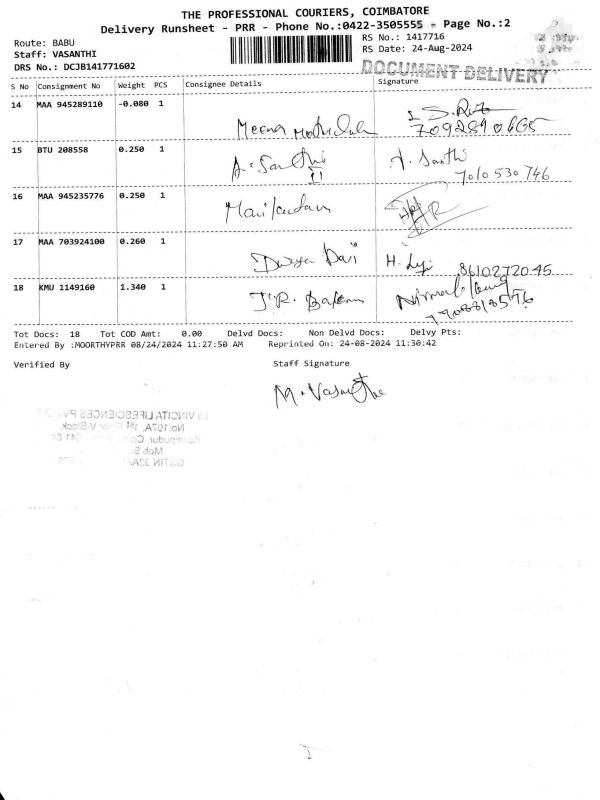 THE PROFESSIONAL COURIERS, COIMBATORE
Delivery Runsheet - PRR - Phone No.:0422-3505555 - Page No.:2
Route: BABU
Staff: VASANTHI
DRS No.: DCJB141771602
RS No.: 1417716
RS Date: 24-Aug-2024
DOCUMENT DELIVERY
S No Consignment No Weight PCS Consignee Details Signature
14 MAA 945289110 -0.080 1 Meena
7092890665
15 BTU 208558 0.250 1 A. Santhi A. Santhi
II 7010530746
16 MAA 945235776 0.250 1 Manikandan
17 MAA 703924100 0.260 1 Divya H. 8610272045
18 KMU 1149160 1.340 1 Nirmal
Tot Docs: 18 Tot COD Amt: 0.00 Delvd Docs: Non Delvd Docs: Delvy Pts:
Entered By :MOORTHYPRR 08/24/2024 11:27:50 AM Reprinted On: 24-08-2024 11:30:42
Verified By Staff Signature
M. Vasanthe
VINCITA LIFESCIENCES PV
No:107A, 1st Floor V-Block
Mob
GSTIN 33A